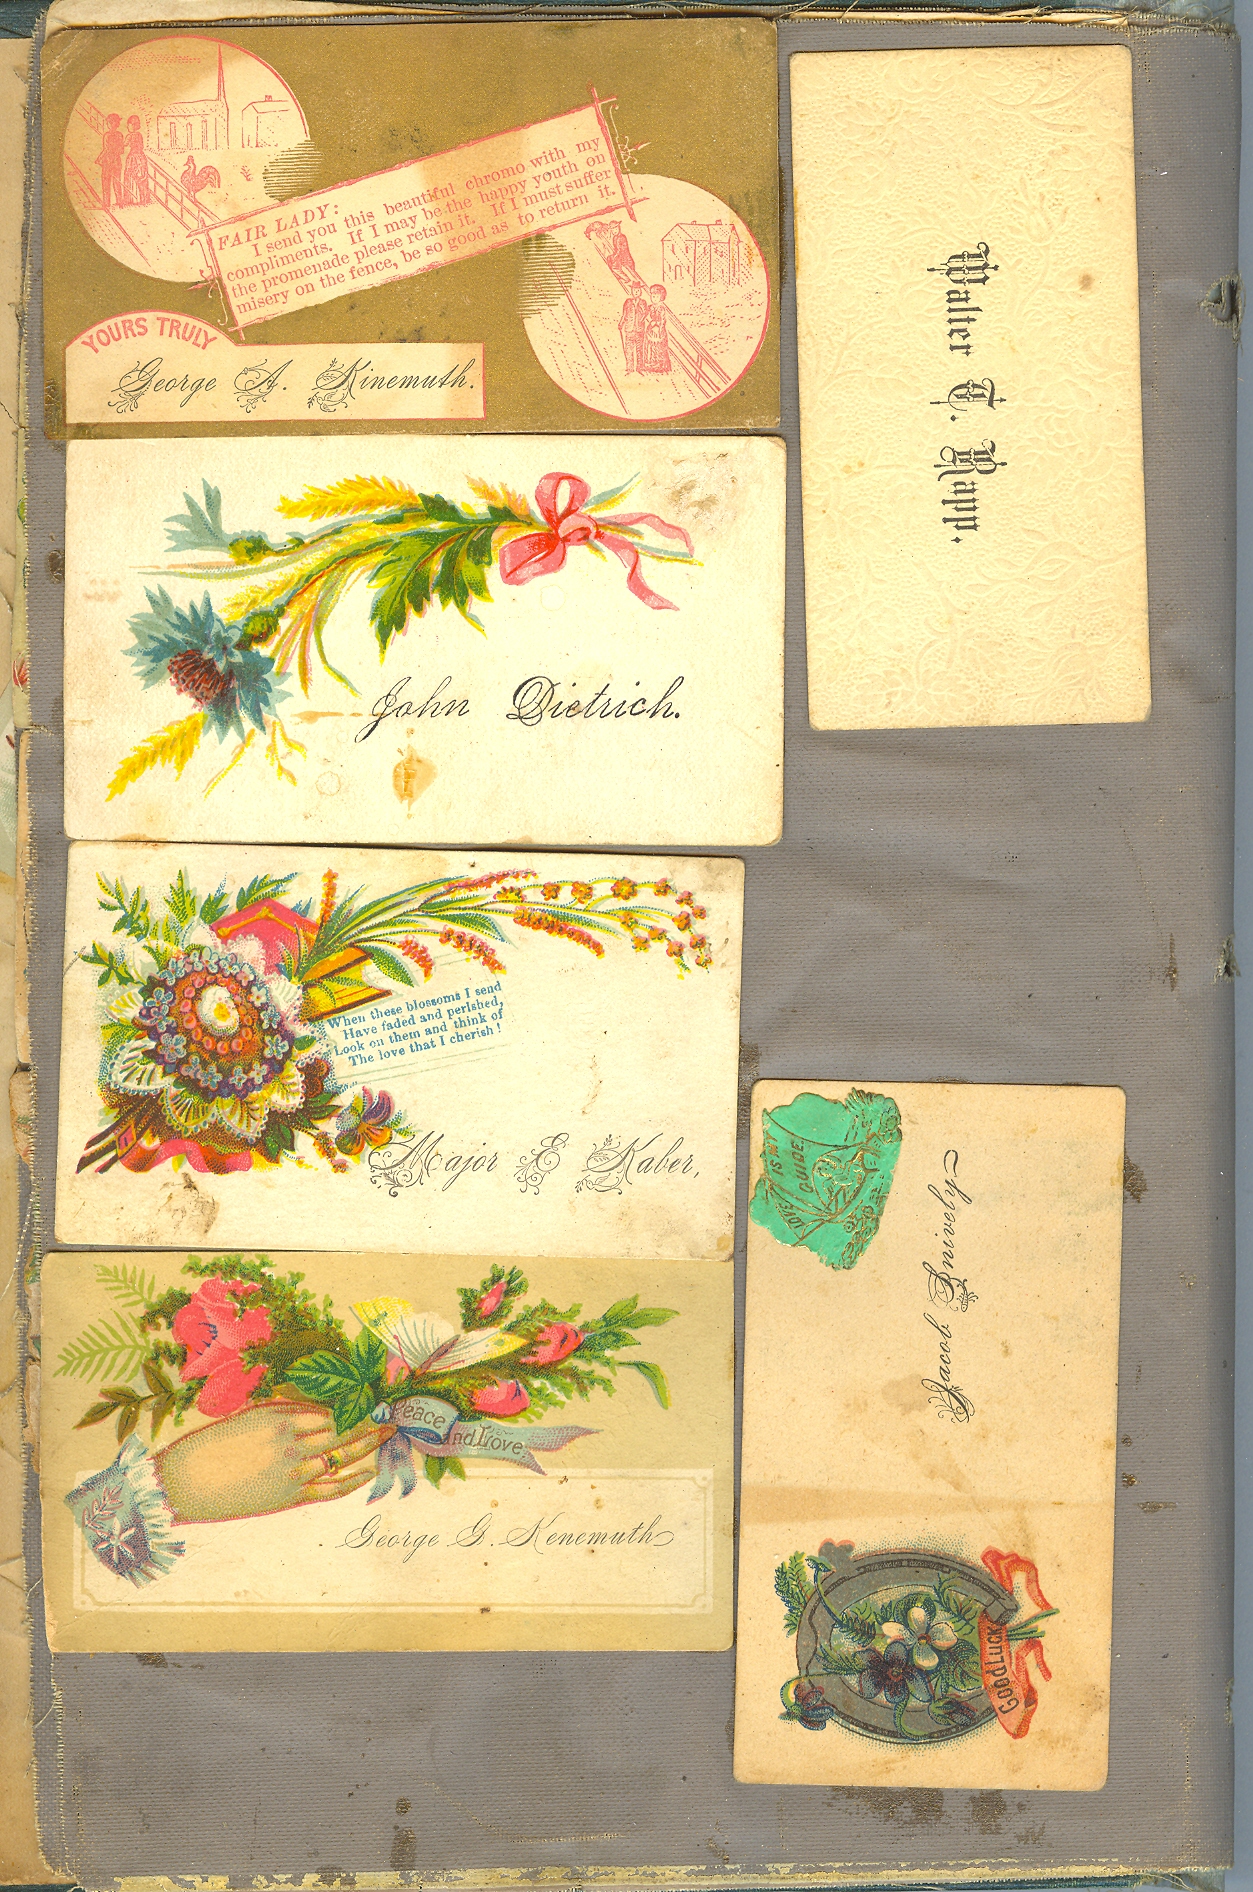 FAIR LADY:
I send you this beautiful chromo with my
compliments. If I may be the happy youth on
the promenade please retain it. If I must suffer
misery on the fence, be so good as to return it.
YOURS TRULY
George A. Kinemuth.
John Dietrich.
When these blossoms I send
Have faded and perished,
Look on them and think of
The love that I cherish!
Major E Kaber,
Peace
and Love
George G. Kenemuth
Walter T. Rapp.
LOVE IS MY
GUIDE
Jacob Snively
GOOD LUCK